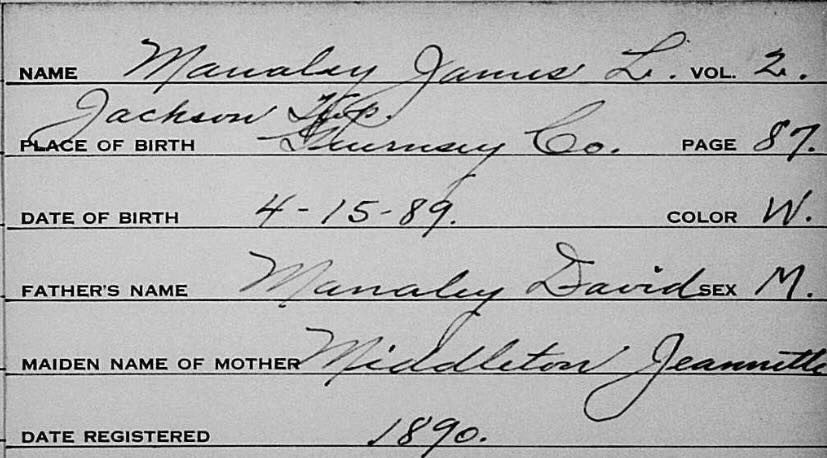 NAME Manaley James L. VOL. 2.
Jackson Twp.
PLACE OF BIRTH Guernsey Co. PAGE 87.
DATE OF BIRTH 4-15-89. COLOR W.
FATHER'S NAME Manaley David SEX M.
MAIDEN NAME OF MOTHER Middleton Jeannette
DATE REGISTERED 1890.